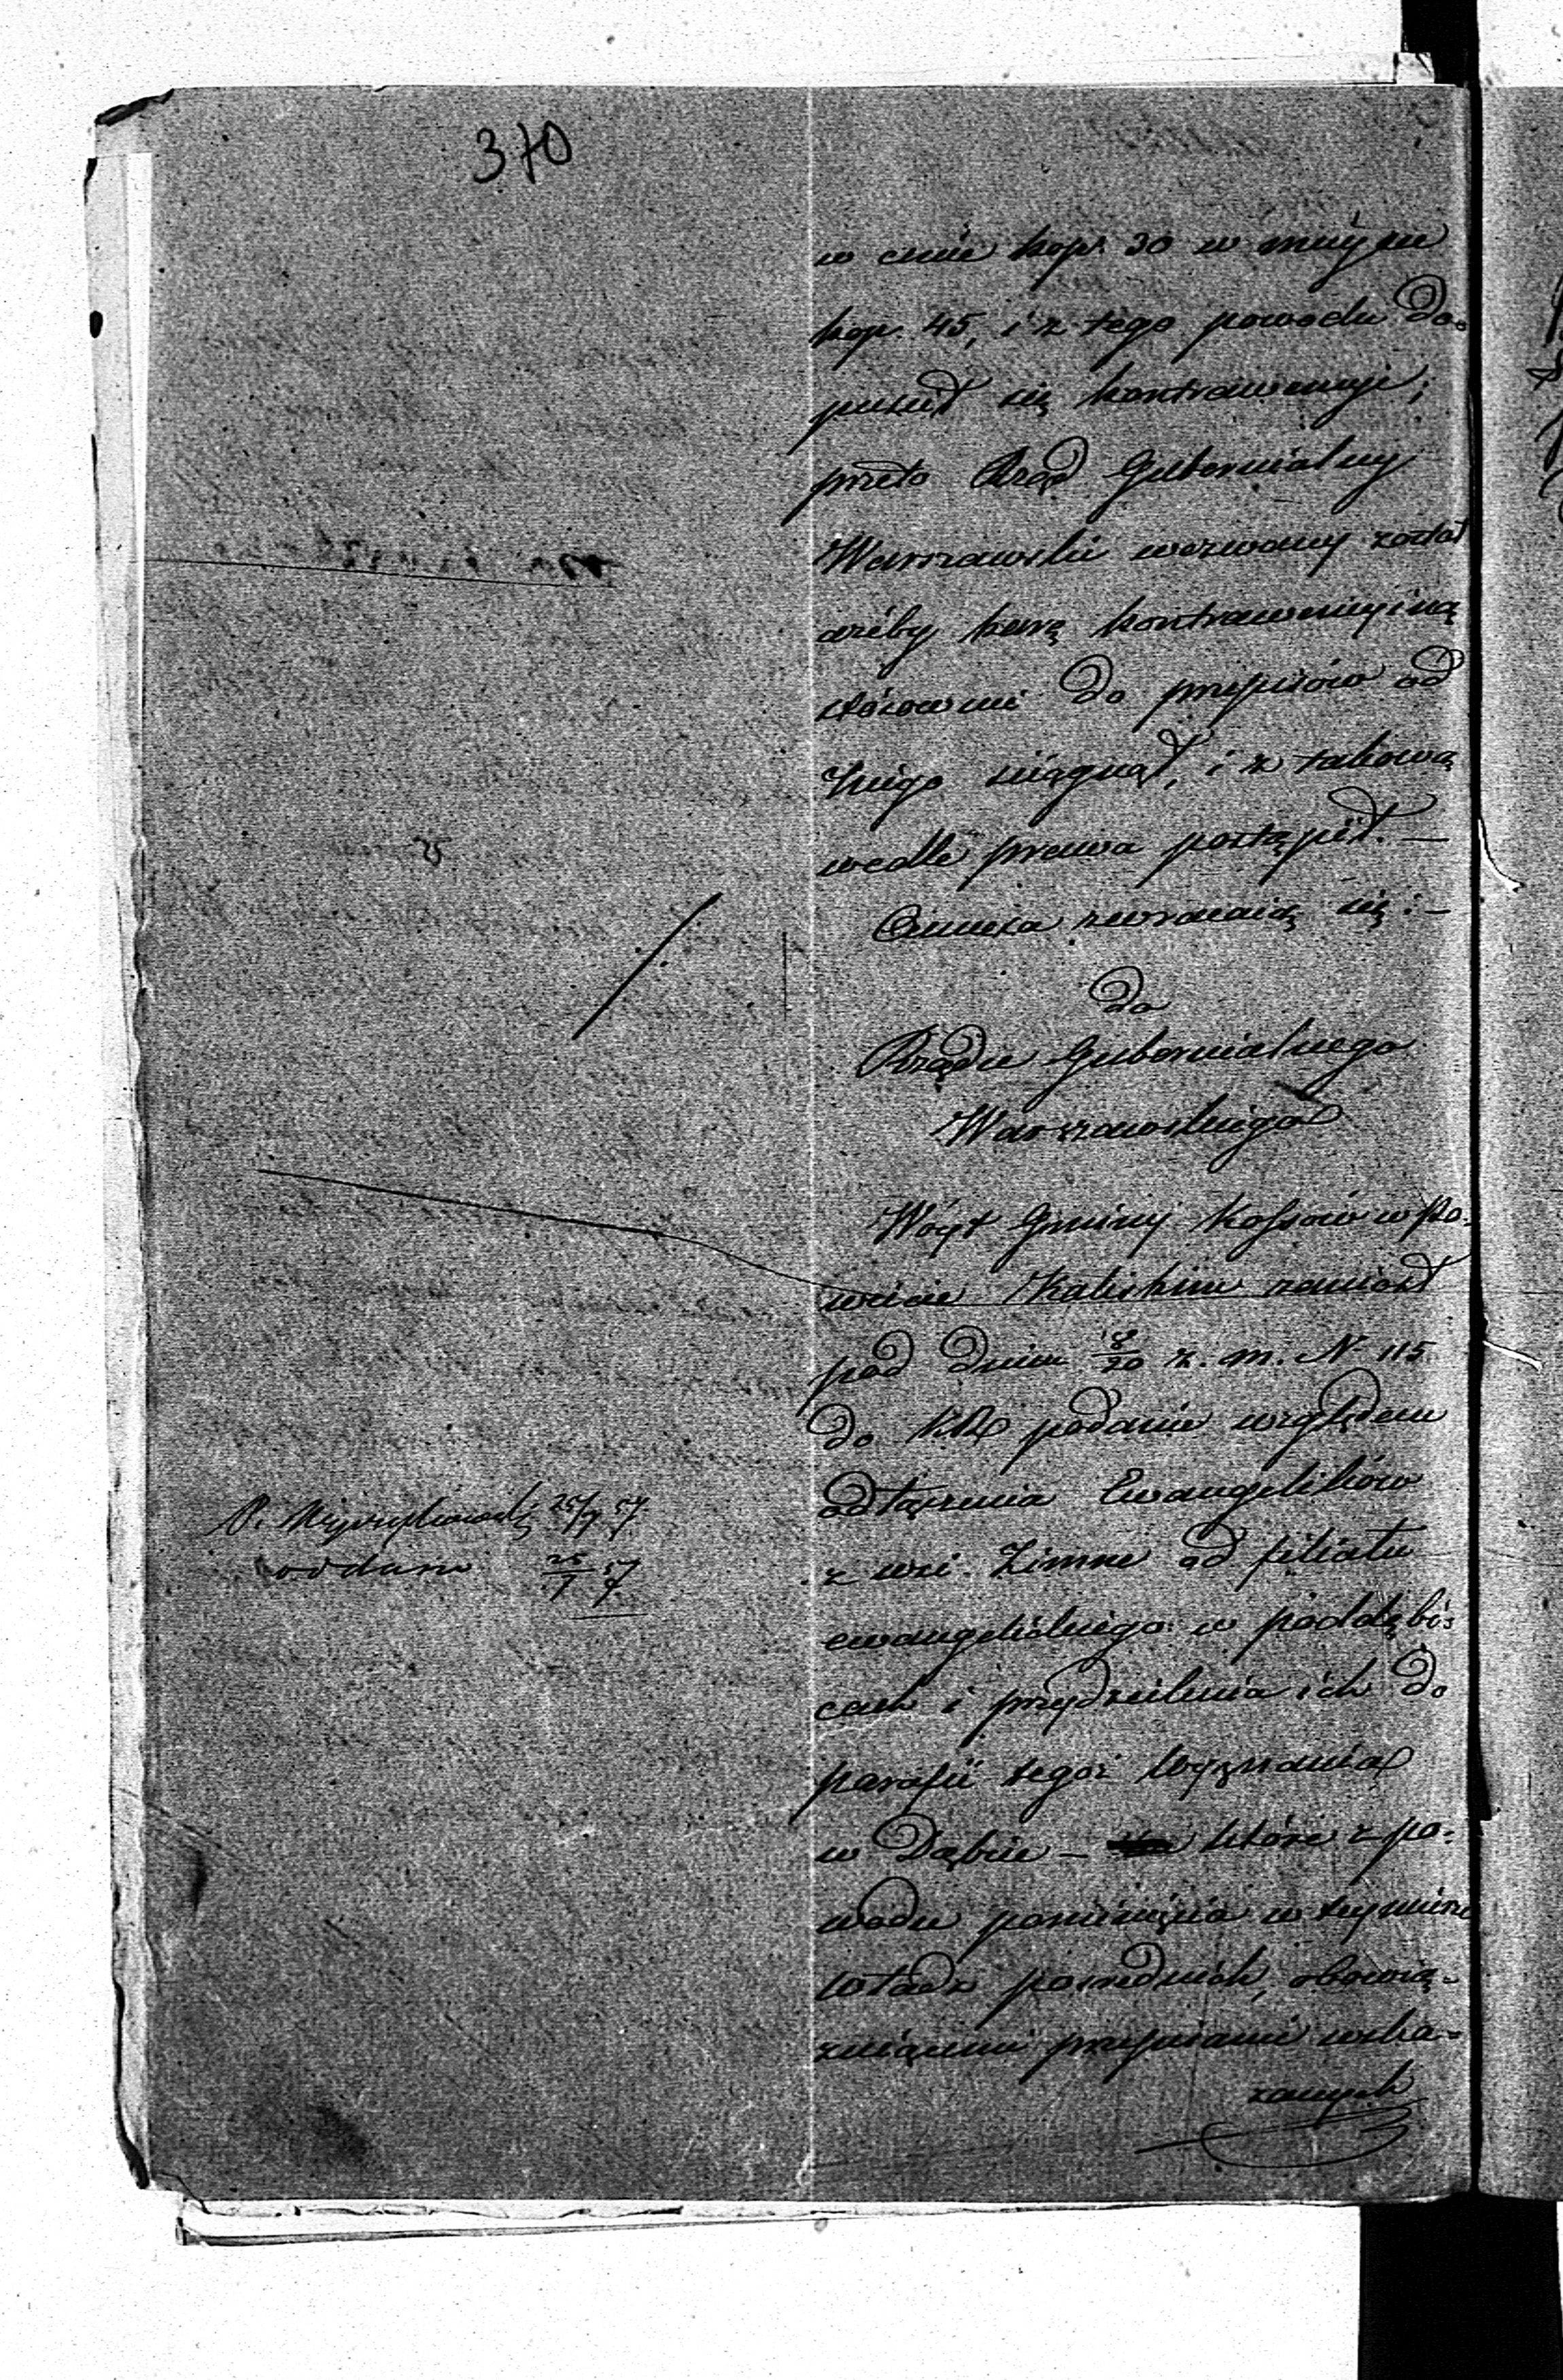 370
w cenie kop. 30 w miejsce
kop. 45, i z tego powodu do-
puścił się kontrawencyi;
przeto Rząd Gubernialny
Warszawski wezwany został
ażeby karę kontrawencyiną
stósownie do przepisów od
niego ściągnął, i z takową
wedle prawa postąpił. —
Annexa zwracaią się: —
do
Rządu Gubernialnego
Warszawskiego
Wóyt Gminy Kossów w Po-
wiecie Kaliskim zaniósł
pod dniem 8/20 z. m. N 115
do KR podanie względem
odłączenia Ewangelików
z wsi Zimne od filiału
ewangelickiego w Poddębi-
cach i przydzielenia ich do
parafii tegoż Wyznania
w Dąbiu — które z po-
wodu pominięcia w tey mierze
Władz pośrednich, obowią-
zuiącemi przepisami wska-
zanych
P. 25/9 57.
oddano 25/9 57